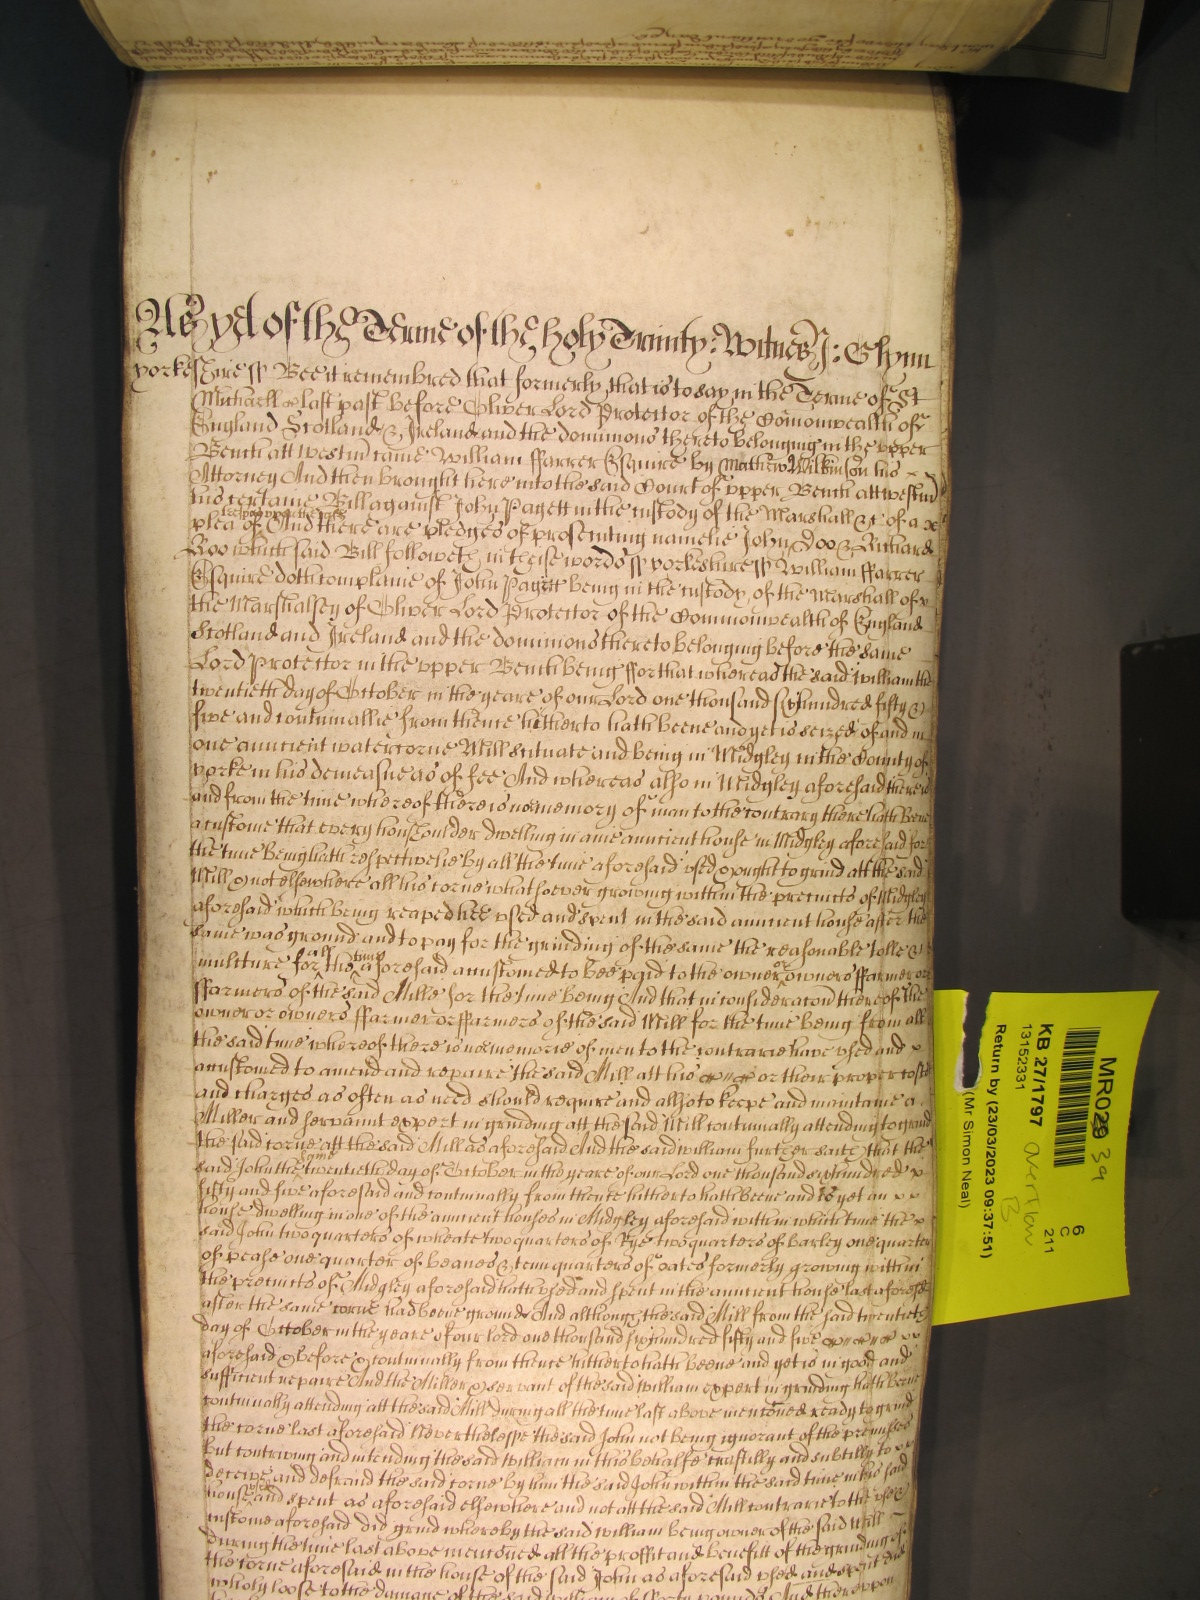 As yet of the Terme of the holy Trinity: Witnes J: Glynn
Yorkeshire ss Bee it remembred that formerly that is to say in the Terme of St
Michaell last past before Oliver Lord Protector of the Comonwealth of
England Scotland & Ireland and the dominions thereto belonging in the upper
Bench att Westm came William ffarrer Esquire by Mathew Wilkinson his
Attorney And then brought here into the said Court of upper Bench att Westm
his certaine Bill against John Pagett in the custody of the Marshall &c of a
plea of And there are pledges of prosecuting namelie John Doo & Richard
Roo which said Bill followeth in theise words ss yorkeshire ss William ffarrer
Esquire doth complaine of John Pagett being in the custody of the Marshall of
the Marshalsey of Oliver Lord Protector of the Commonwealth of England
Scotland and Ireland and the dominions thereto belonging before the same
Lord Protector in the upper Bench being ffor that whereas the said William the
twentieth day of October in the yeare of our Lord one thousand six hundred fifty &
five and continuallie from thence hitherto hath beene and yet is seized of and in
one auncient water corne Mill situate and being in Midgley in the County of
yorke in his demeasne as of fee And whereas also in Midgley aforesaid there is
and from the time whereof there is not memory of man to the contrary there hath beene
a custome that every housoulder dwelling in anie auncient house in Midgley aforesaid for
the time being hath respectivelie by all the time aforesaid used & ought to grind att the said
Mill & not elsewhere all his corne whatsoever growing within the precincts of Midgley
aforesaid which being reaped bee used and spent in the said auncient house after the
same was ground and to pay for the grinding of the same the reasonable tolle &
multure for all the time aforesaid accustomed to bee paid to the owner or owners ffarmer or
ffarmers of the said Mille for the time being And that in consideracon thereof the
owner or owners ffarmer or ffarmers of the said Mill for the time being from all
the said time whereof there is not memorie of men to the contrarie have used and
accustomed to amend and repaire the said Mill att his or their proper costs
and charges as often as need should require and also to keepe and maintaine a
Miller and servannt expert in grinding att the said Mill continually attending to grind
the said corne att the said Mill as aforesaid And the said William further saith that the
said John the same twentieth day of October in the yeare of our Lord one thousand six hundred
fifty and five aforesaid and continually from thence hitherto hath beene and is yet an
house dwelling in one of the auncient houses in Midgley aforesaid within which time the
said John two quarters of wheate two quarters of Rye two quarters of barley one quarter
of pease one quarter of beanes & tenn quarters of oates formerly growing within
the precincts of Midgley aforesaid hath used and spent in the auncient house last aforesd
after the same corne had beene ground And although the said Mill from the said twentieth
day of October in the yeare of our lord one thousand six hundred fifty and five
aforesaid & before & continually from thence hitherto hath beene and yet is in good and
sufficient repaire And the Miller & servant of the said William expert in grinding hath beene
continually attending att the said Mill during all the time last above mentoned ready to grind
the corne last aforesaid Neverthelesse the said John not being ignorant of the premisses
but contriving and intending the said William in this behalfe craftilly and subtilly to
deceive and defraud the said corne by him the said John within the said time in his said
house used and spent as aforesaid elsewhere and not att the said Mill contrarie to the use &
custome aforesaid did grind whereby the said William being owner of the said Mill
during the time last above mentoned all the proffit and benefitt of the grinding of
the corne aforesaid in the house of the said John as aforesaid used and spent did
wholy loose to the damage of the said William of forty pounds And thereupon
MR029 39
KB 27/1797
13152331
Return by (23/03/2023 09:37:51)
(Mr Simon Neal)
6
C
211